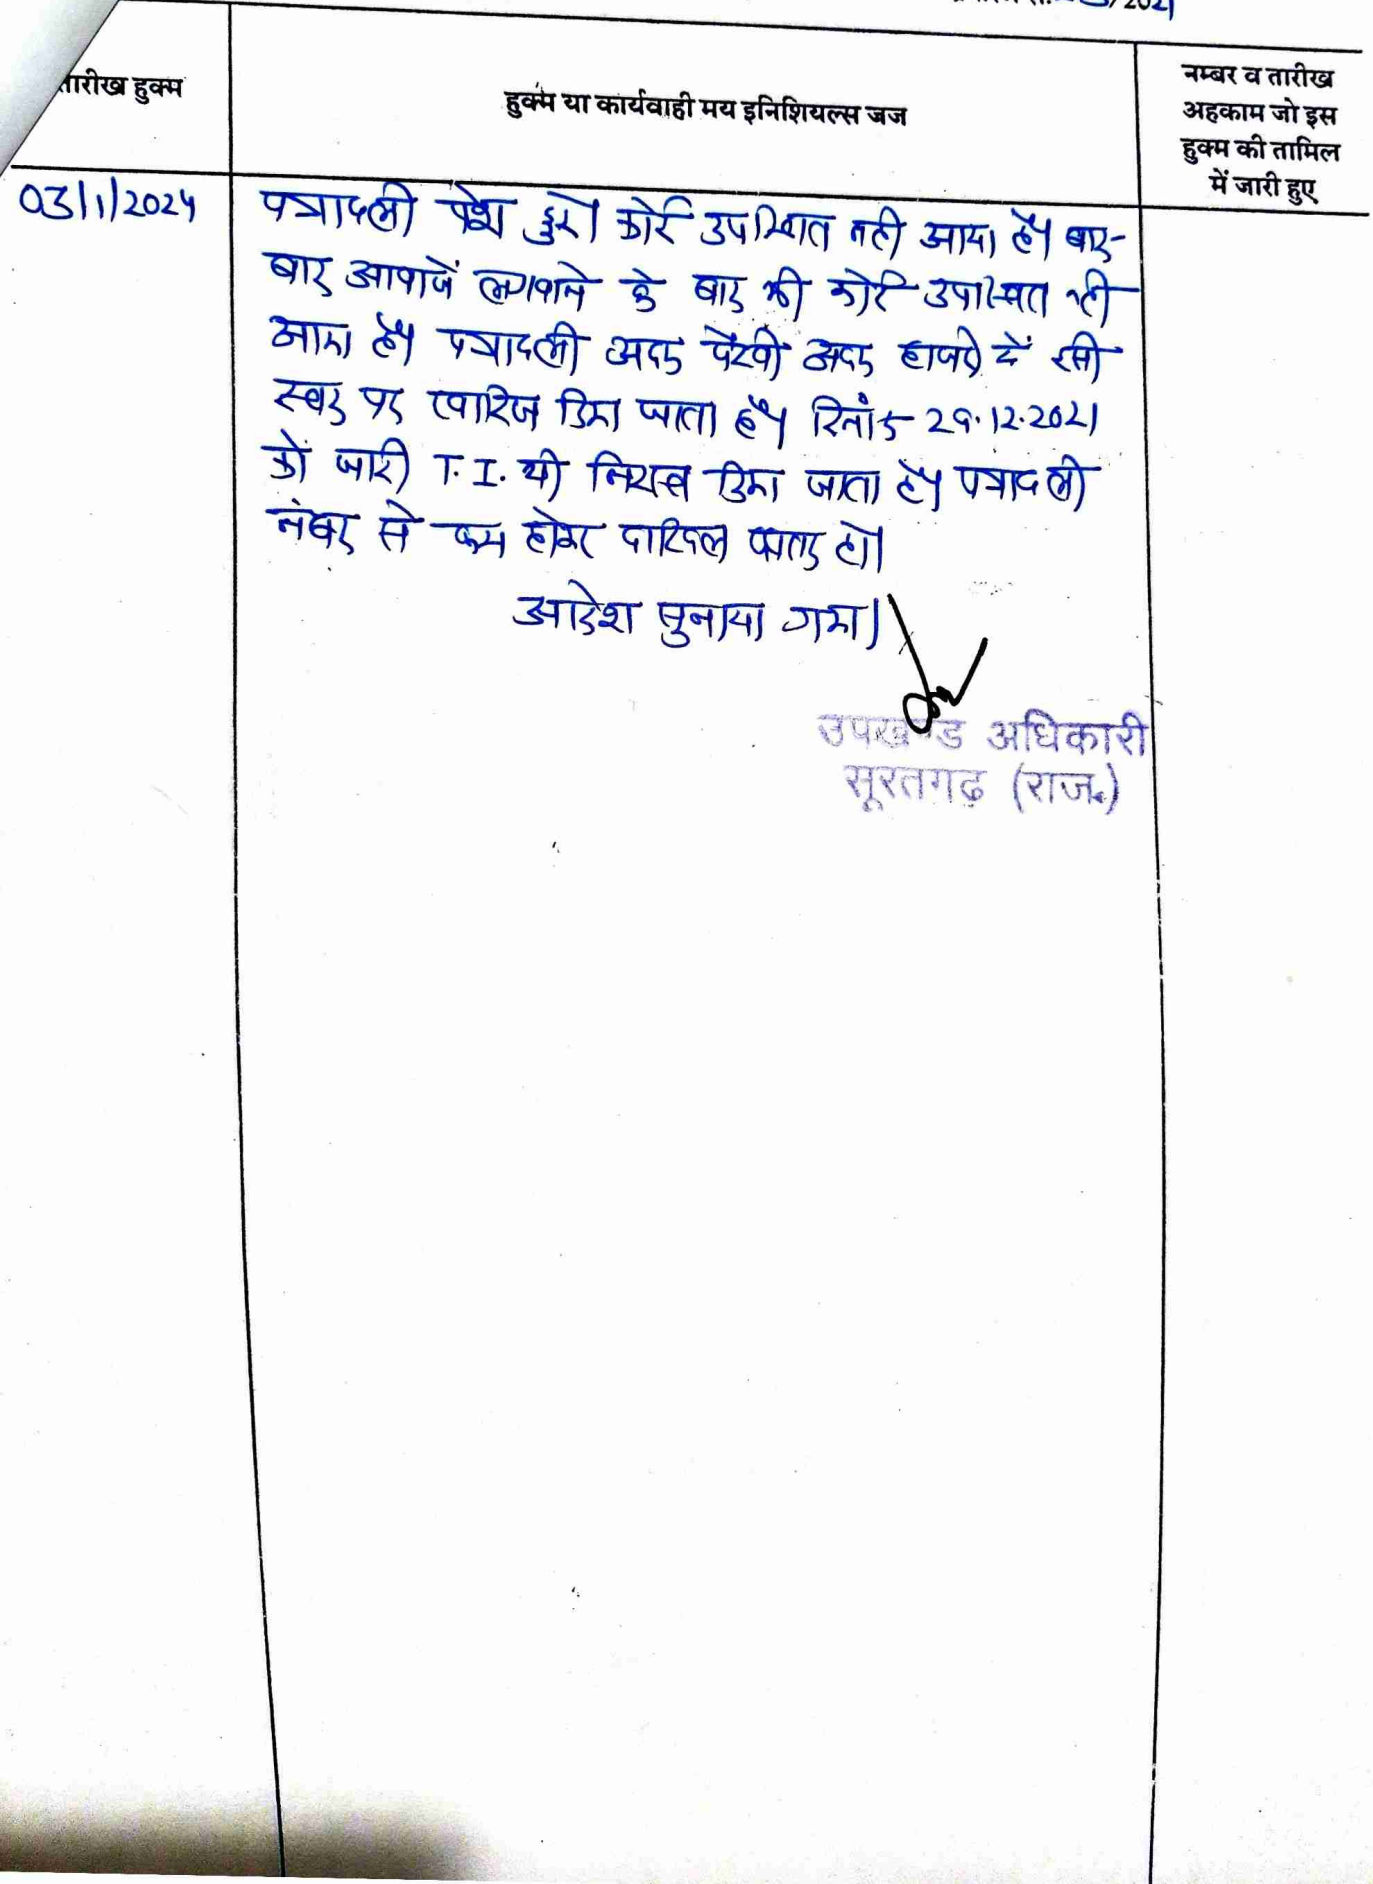 /2021
तारीख हुक्म
हुक्म या कार्यवाही मय इनिशियल्स जज
नम्बर व तारीख
अहकाम जो इस
हुक्म की तामिल
में जारी हुए
03/1/2024
पत्रावली पेश हुई। कोई उपस्थित नही आया है। बार-
बार आवाजें लगवाने के बाद भी कोई उपस्थित नही
आया है। पत्रावली अदम पैरवी अदम हाजरी में इसी
स्तर पर खारिज किया जाता है। दिनांक 29.12.2021
को जारी T.I. भी निरस्त किया जाता है। पत्रावली
नंबर से कम होकर दाखिल दफ्तर हो।
आदेश सुनाया गया।
उपखण्ड अधिकारी
सूरतगढ़ (राज.)